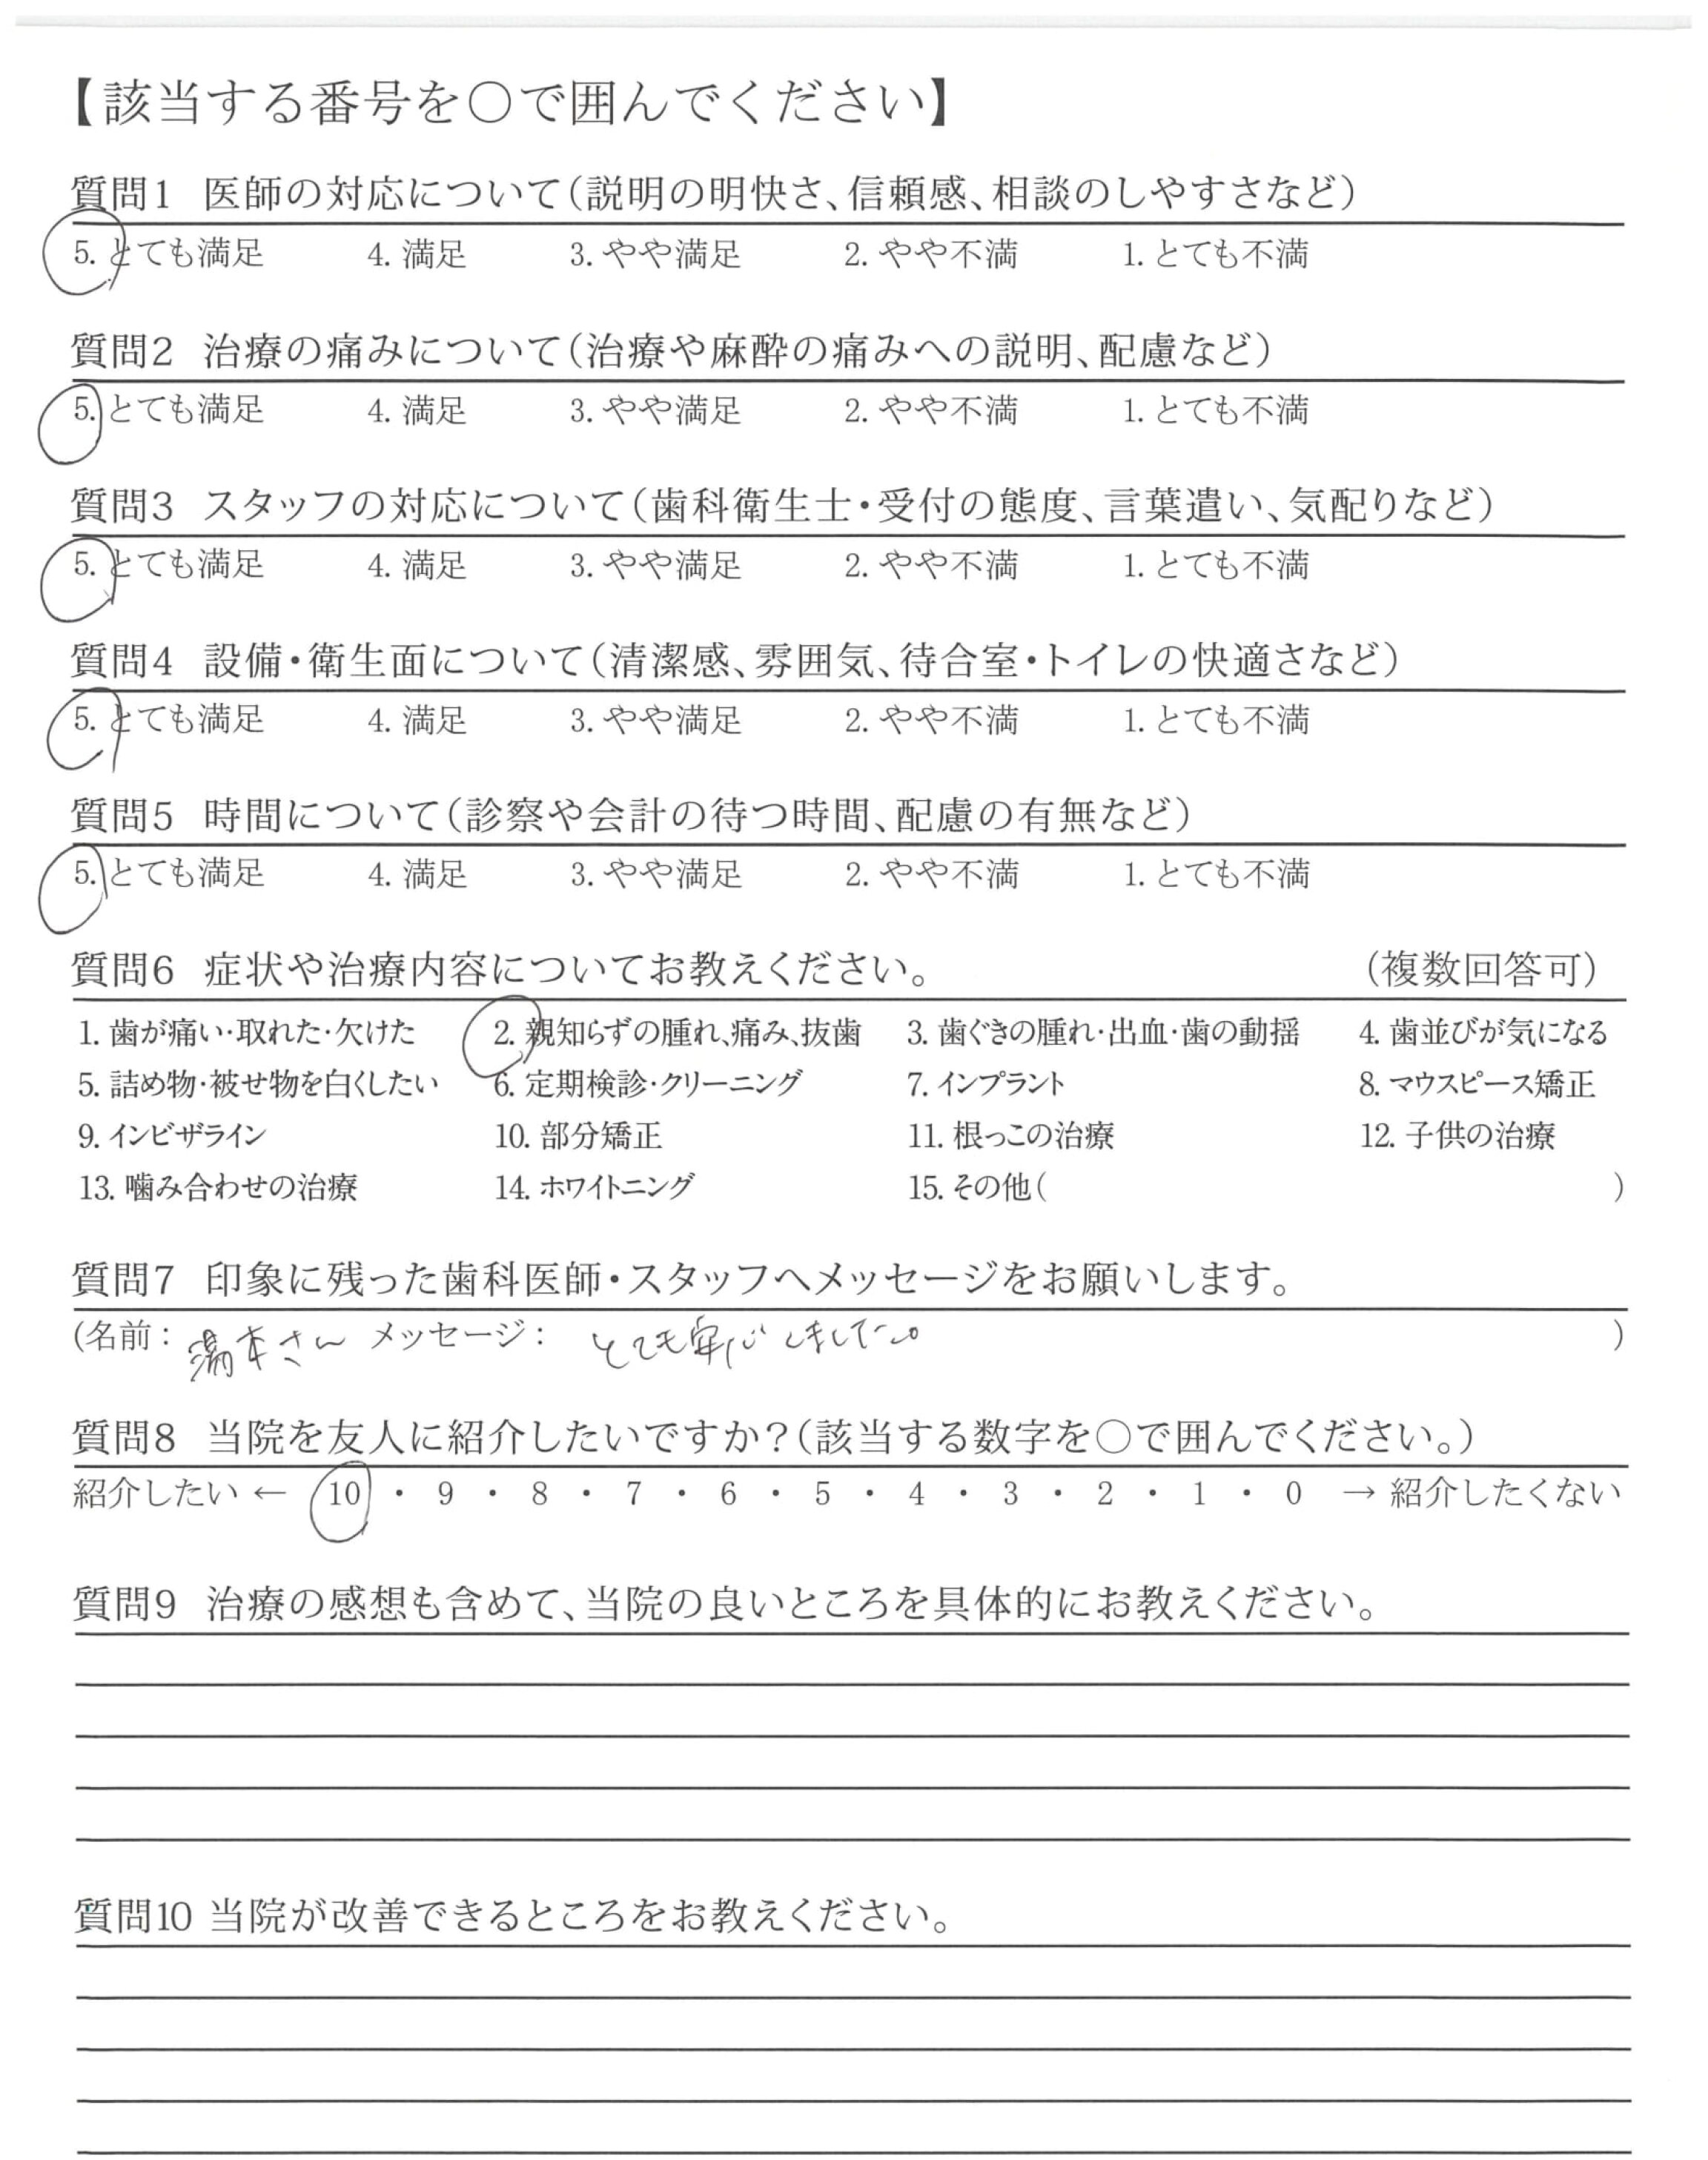 【該当する番号を○で囲んでください】
質問1 医師の対応について(説明の明快さ、信頼感、相談のしやすさなど)
5. とても満足 4. 満足 3. やや満足 2. やや不満 1. とても不満
質問2 治療の痛みについて(治療や麻酔の痛みへの説明、配慮など)
5. とても満足 4. 満足 3. やや満足 2. やや不満 1. とても不満
質問3 スタッフの対応について(歯科衛生士・受付の態度、言葉遣い、気配りなど)
5. とても満足 4. 満足 3. やや満足 2. やや不満 1. とても不満
質問4 設備・衛生面について(清潔感、雰囲気、待合室・トイレの快適さなど)
5. とても満足 4. 満足 3. やや満足 2. やや不満 1. とても不満
質問5 時間について(診察や会計の待つ時間、配慮の有無など)
5. とても満足 4. 満足 3. やや満足 2. やや不満 1. とても不満
質問6 症状や治療内容についてお教えください。 (複数回答可)
1. 歯が痛い・取れた・欠けた 2. 親知らずの腫れ、痛み、抜歯 3. 歯ぐきの腫れ・出血・歯の動揺 4. 歯並びが気になる
5. 詰め物・被せ物を白くしたい 6. 定期検診・クリーニング 7. インプラント 8. マウスピース矯正
9. インビザライン 10. 部分矯正 11. 根っこの治療 12. 子供の治療
13. 噛み合わせの治療 14. ホワイトニング 15. その他( )
質問7 印象に残った歯科医師・スタッフへメッセージをお願いします。
(名前: 湯本さん メッセージ: とても安心しました。 )
質問8 当院を友人に紹介したいですか?(該当する数字を○で囲んでください。)
紹介したい ← 10 ・ 9 ・ 8 ・ 7 ・ 6 ・ 5 ・ 4 ・ 3 ・ 2 ・ 1 ・ 0 → 紹介したくない
質問9 治療の感想も含めて、当院の良いところを具体的にお教えください。
質問10 当院が改善できるところをお教えください。